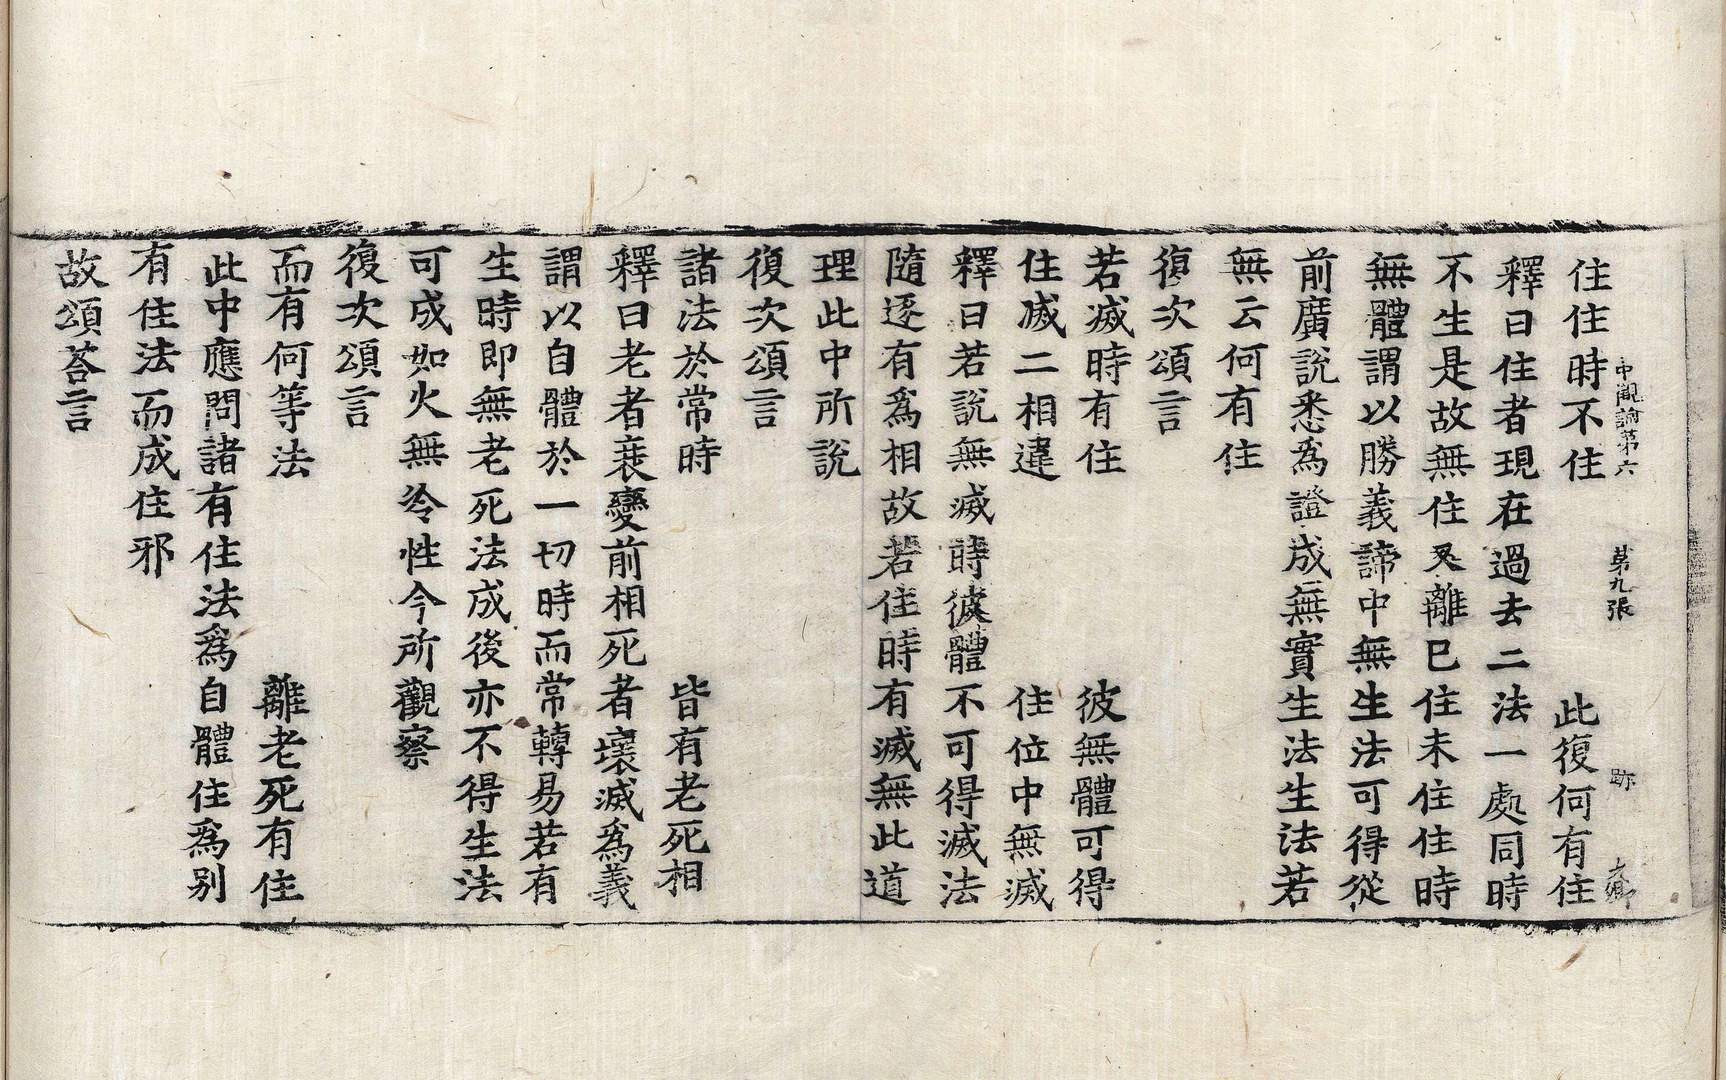 中觀論第六　第九張　跡　大卿
住住時不住　此復何有住
釋曰住者現在過去二法一處同時
不生是故無住又離已住未住住時
無體謂以勝義諦中無生法可得從
前廣說悉為證成無實生法生法若
無云何有住
復次頌言
若滅時有住　彼無體可得
住滅二相違　住位中無滅
釋曰若說無滅時彼體不可得滅法
隨逐有為相故若住時有滅無此道
理此中所說
復次頌言
諸法於常時　皆有老死相
釋曰老者衰變前相死者壞滅為義
謂以自體於一切時而常轉易若有
生時即無老死法成後亦不得生法
可成如火無冷性今所觀察
復次頌言
而有何等法　離老死有住
此中應問諸有住法為自體住為別
有住法而成住邪
故頌荅言